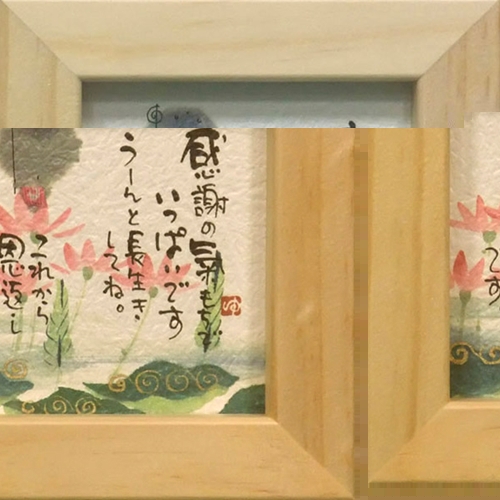 感謝の氣もちで
いっぱいです
うーんと長生き
してね。
これから
恩返し
です